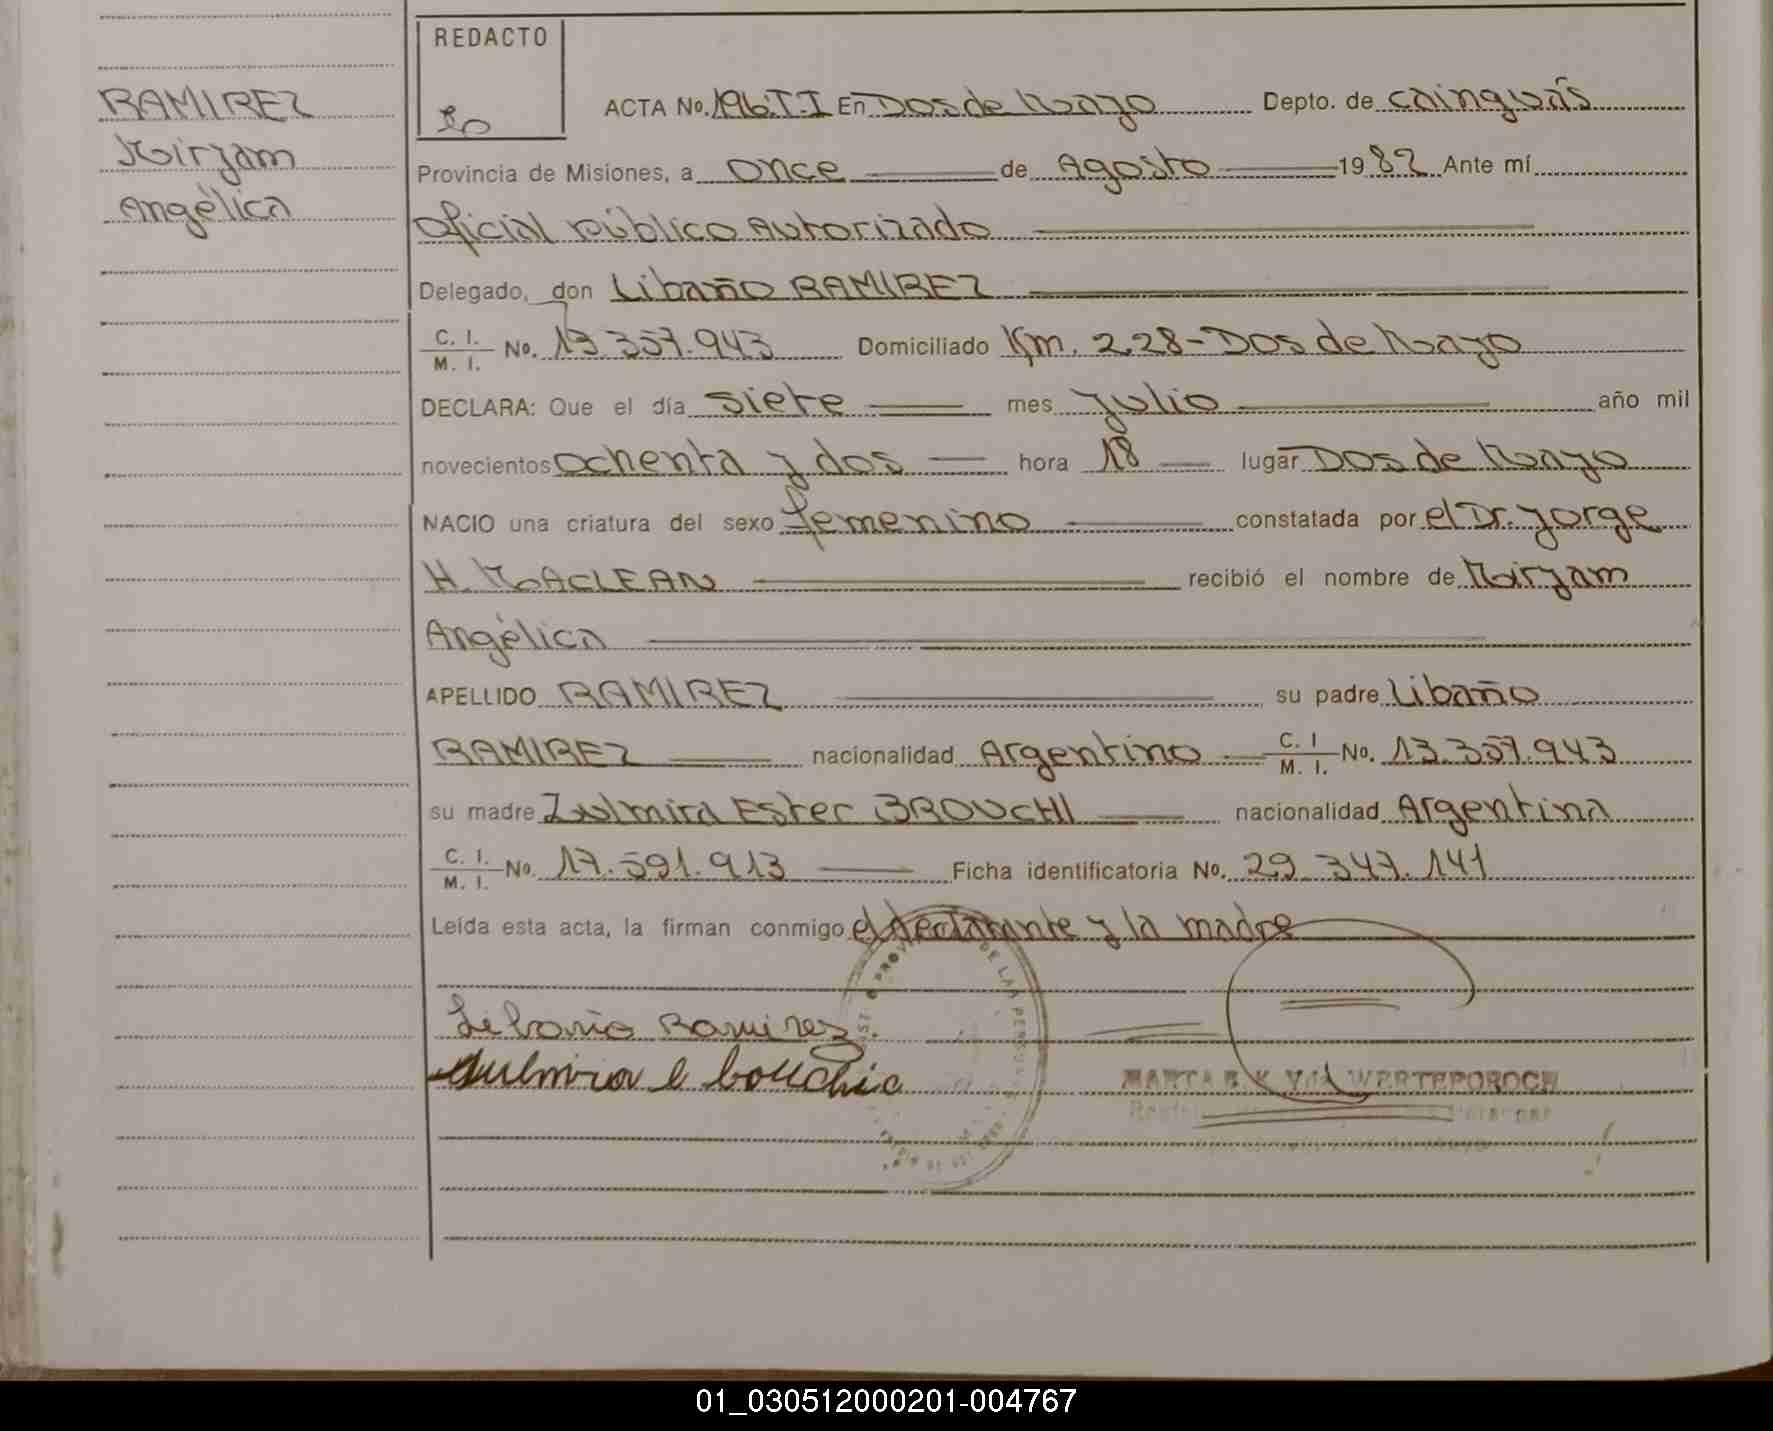 REDACTO
RAMIREZ
Mirjam
Angélica
ACTA No. 196.T.I En Dos de Mayo Depto. de Cainguás
Provincia de Misiones, a once de Agosto 1982 Ante mí
Oficial Público Autorizado
Delegado, don Libaño RAMIREZ
C. I. / M. I. No. 13.357.943 Domiciliado Km. 228-Dos de Mayo
DECLARA: Que el día siete mes julio año mil
novecientos ochenta y dos hora 18 lugar Dos de Mayo
NACIO una criatura del sexo femenino constatada por el Dr. Jorge
H. MACLEAN recibió el nombre de Mirjam
Angélica
APELLIDO RAMIREZ su padre Libaño
RAMIREZ nacionalidad Argentino C. I / M. I. No. 13.357.943
su madre Zulmira Ester BROUCHI nacionalidad Argentina
C. I. / M. I. No. 17.591.913 Ficha identificatoria No. 29.347.141
Leída esta acta, la firman conmigo el declarante y la madre
Libaño Ramirez
sulmira e bouchie
MARTA WERTEPOROCH
01_030512000201-004767